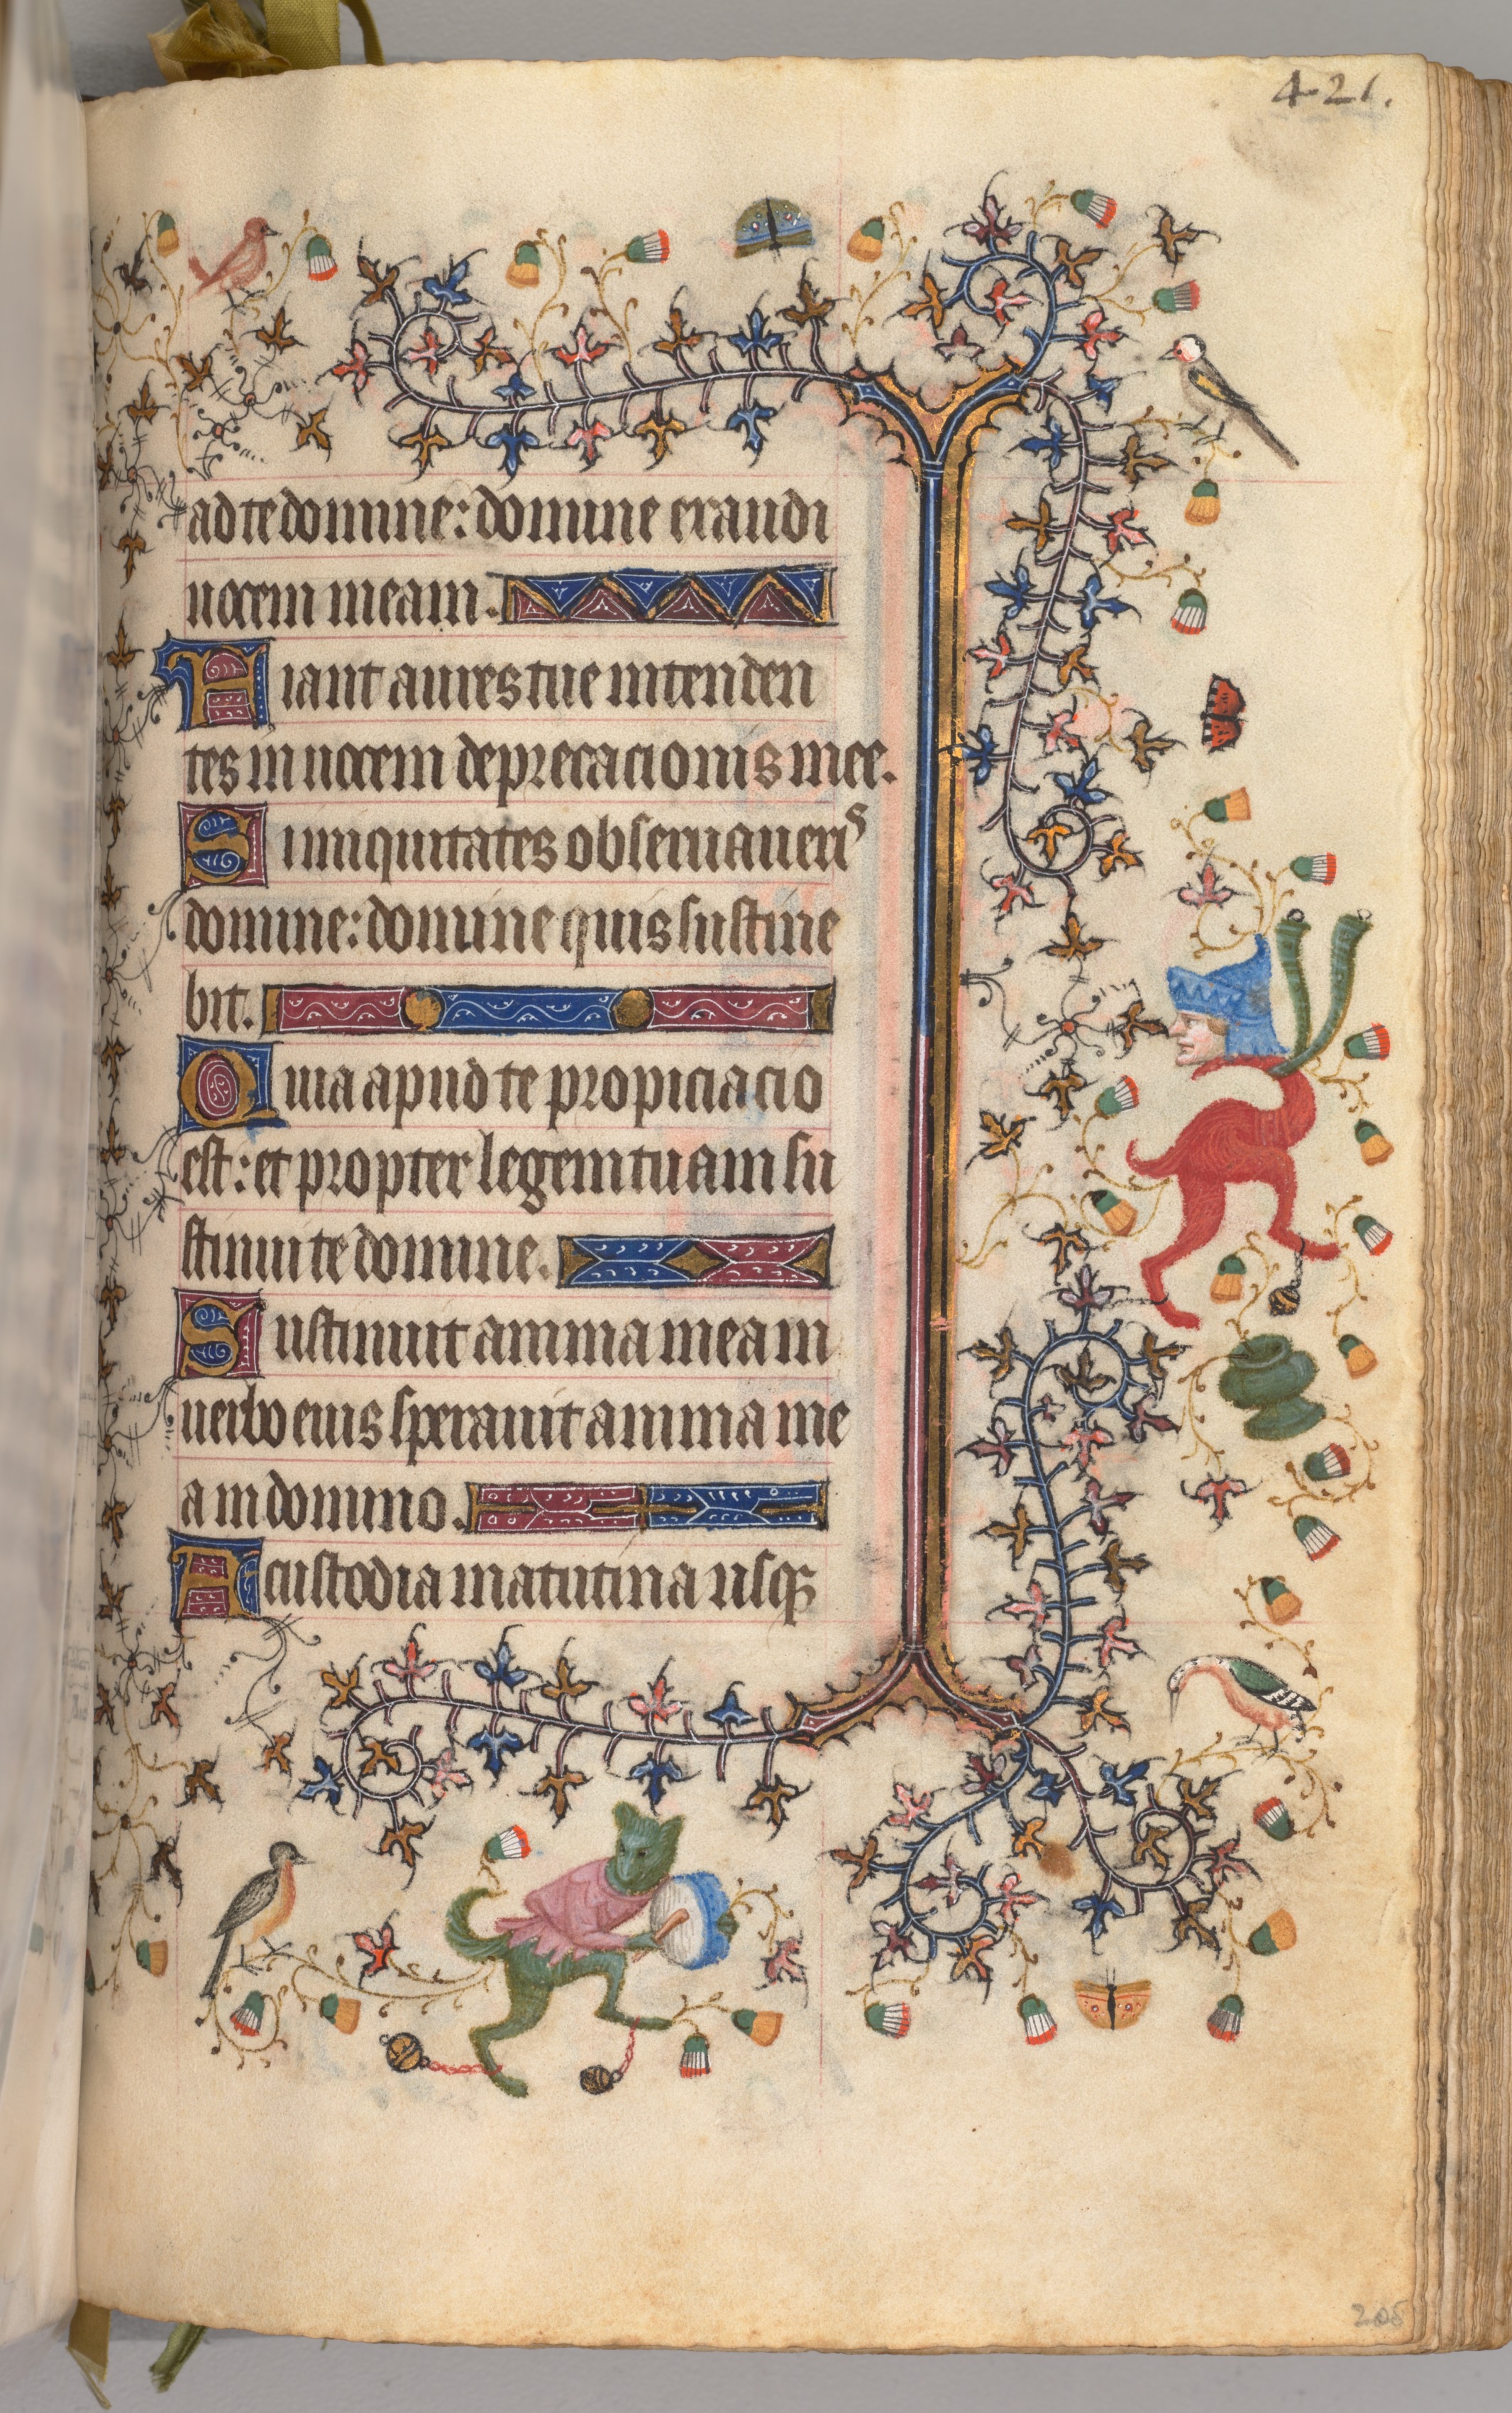 421.
ad te domine: domine exaudi
uocem meam.
Fiant aures tue intenden
tes in uocem deprecacionis mee.
Si iniquitates obseruaueris
domine: domine quis sustine
bit.
Quia apud te propiciacio
est: et propter legem tuam su
stinui te domine.
Sustinuit anima mea in
uerbo eius sperauit anima me
a in domino.
A custodia matutina usqꝫ